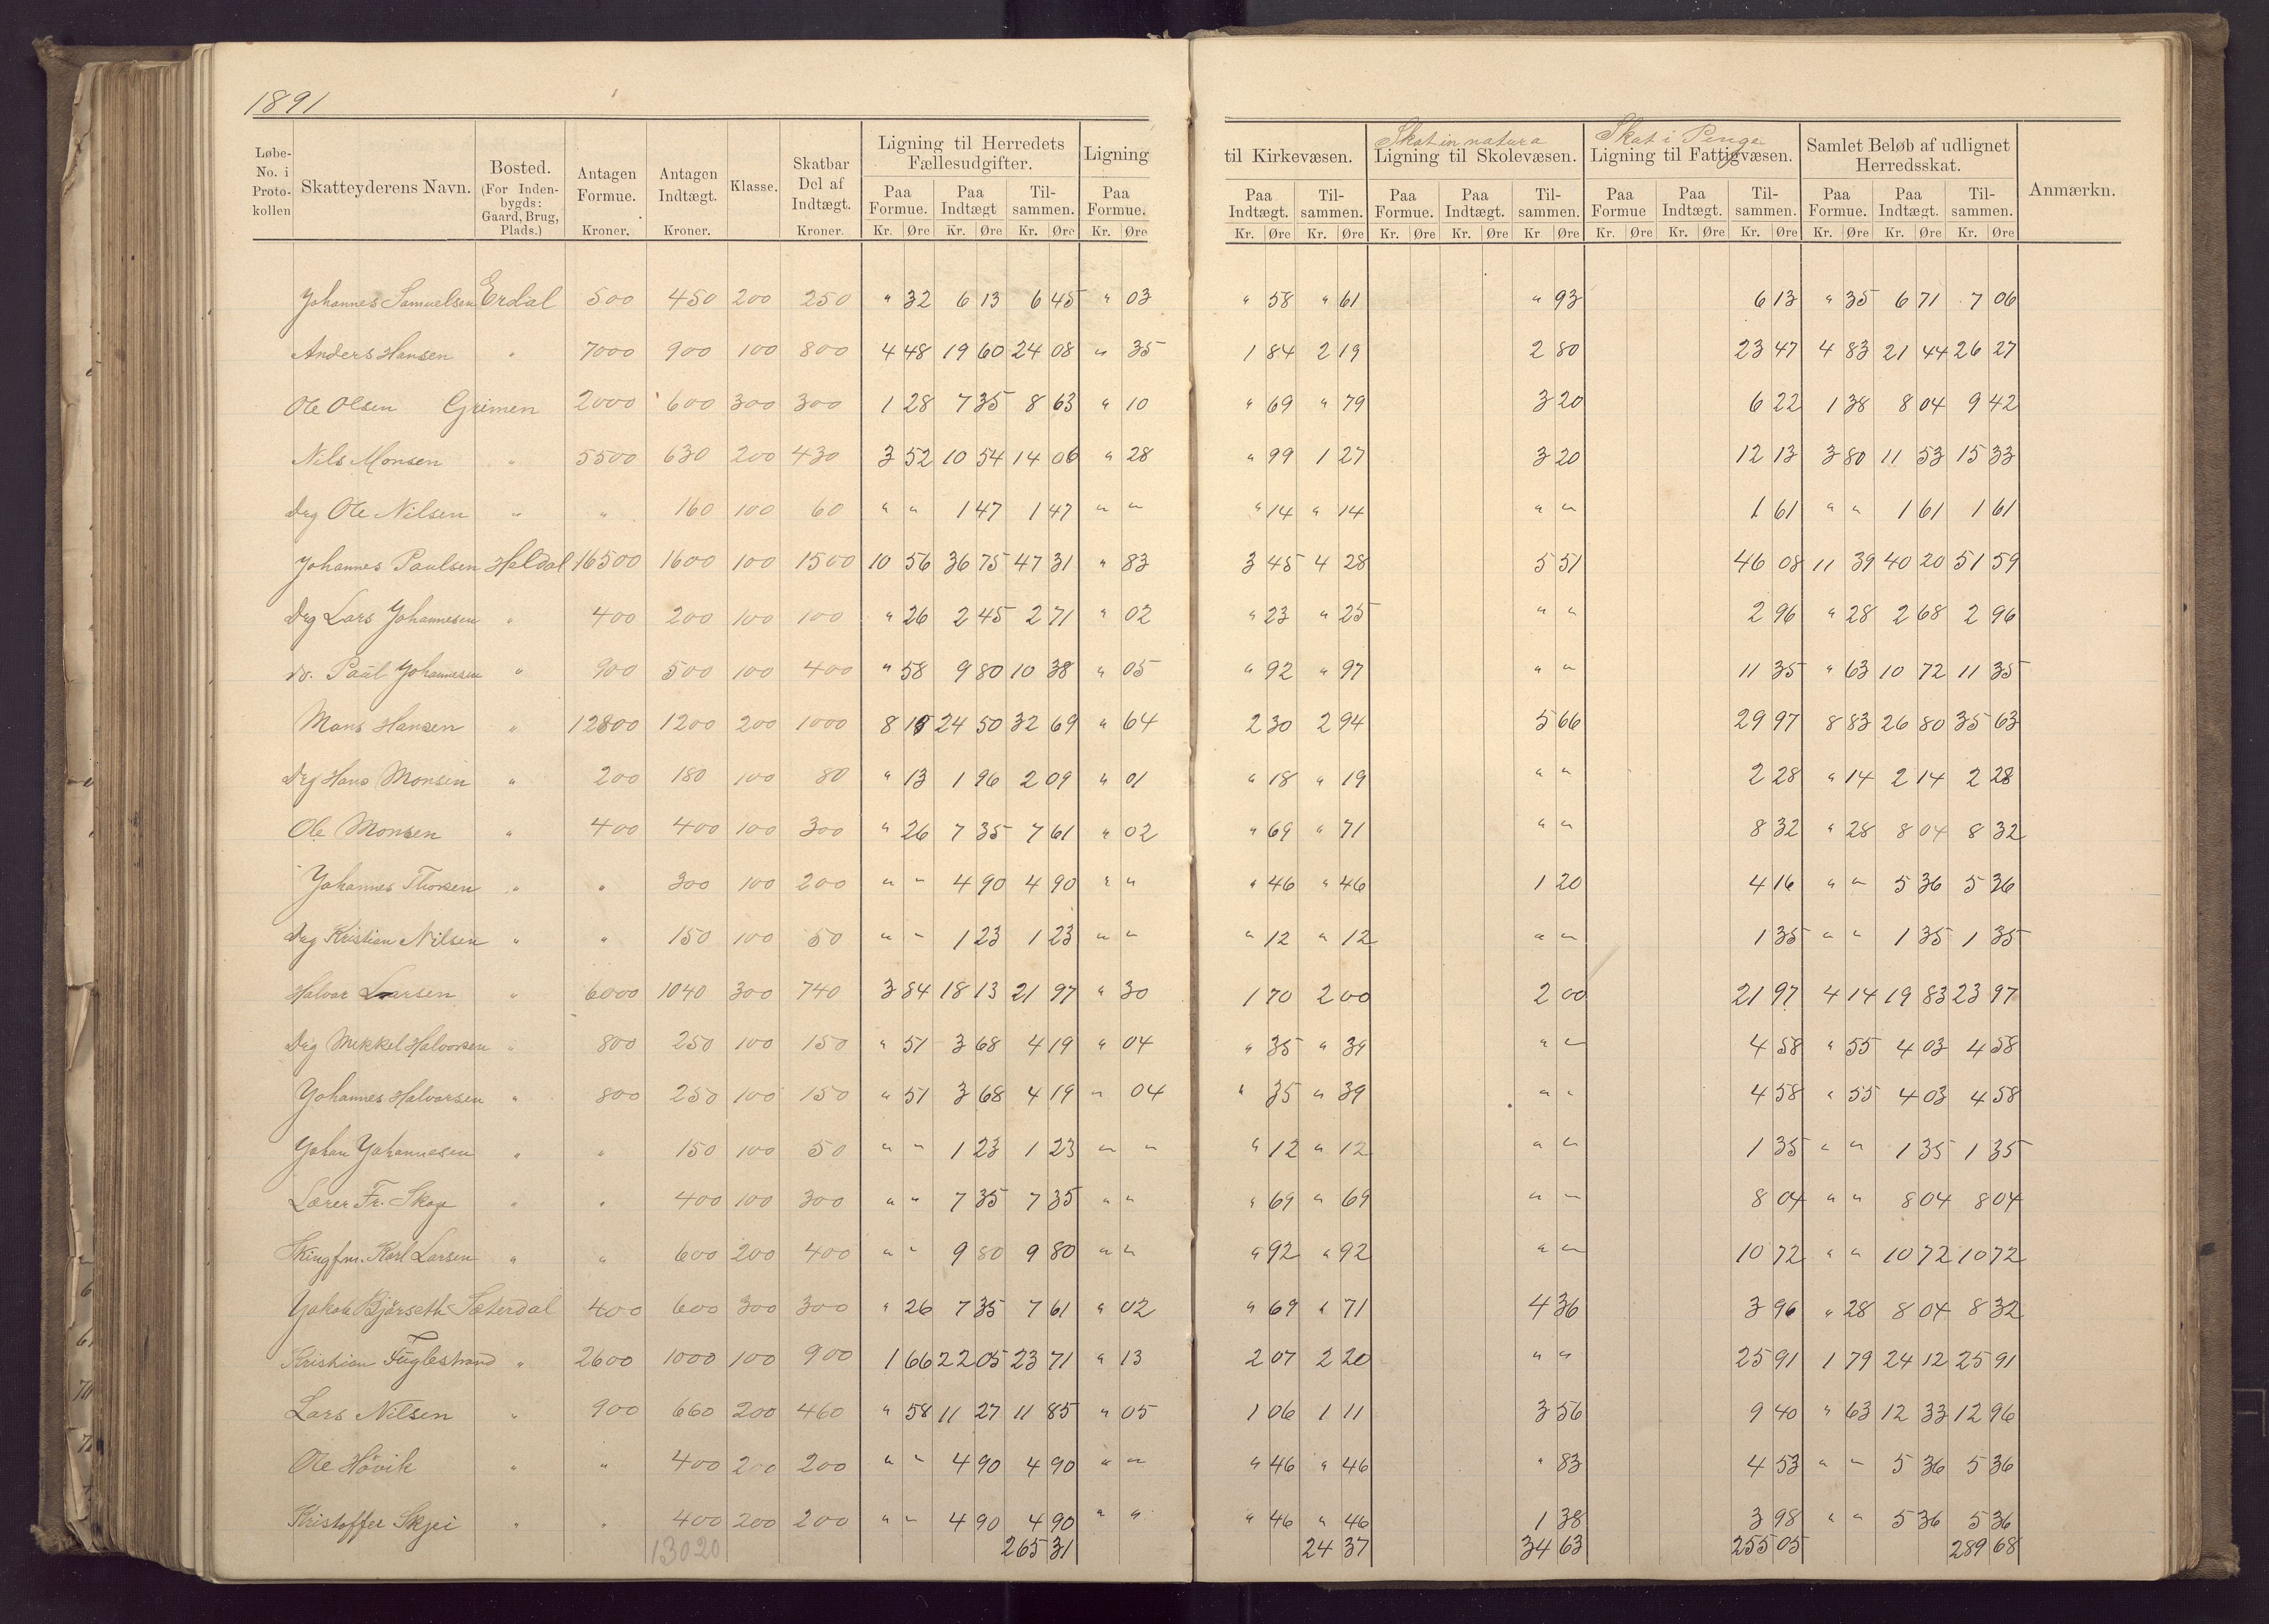 1891
Løbe-No. i Proto-kollen | Skatteyderens Navn. | Bosted. (For Inden-bygds: Gaard, Brug, Plads.) | Antagen Formue. Kroner. | Antagen Indtægt. Kroner. | Klasse. | Skatbar Del af Indtægt. Kroner. | Ligning til Herredets Fællesudgifter. | Ligning til Kirkevæsen. | Skat in natura Ligning til Skolevæsen. | Skat i Penge Ligning til Fattigvæsen. | Samlet Beløb af udlignet Herredsskat. | Anmærkn.
Paa Formue. | Paa Indtægt | Til-sammen. | Paa Formue. | Paa Indtægt. | Til-sammen. | Paa Formue. | Paa Indtægt. | Til-sammen. | Paa Formue | Paa Indtægt. | Til-sammen. | Paa Formue. | Paa Indtægt. | Til-sammen.
Kr. Øre Kr. Øre Kr. Øre Kr. Øre Kr. Øre Kr. Øre Kr. Øre Kr. Øre Kr Øre Kr. Øre Kr. Øre Kr. Øre Kr. Øre Kr. Øre Kr. Øre
Johannes Samuelsen Erdal 500 450 200 250 " 32 6 13 6 45 " 03 " 58 " 61 " 93 6 13 " 35 6 71 7 06
Anders Hansen " 7000 900 100 800 4 48 19 60 24 08 " 35 1 84 2 19 2 80 23 47 4 83 21 44 26 27
Ole Olsen Grimen 2000 600 300 300 1 28 7 35 8 63 " 10 " 69 " 79 3 20 6 22 1 38 8 04 9 42
Nils Monsen " 5500 630 200 430 3 52 10 54 14 06 " 28 " 99 1 27 3 20 12 13 3 80 11 53 15 33
Drg Ole Nilsen " " 160 100 60 " " 1 47 1 47 " " " 14 " 14 " " 1 61 " " 1 61 1 61
Johannes Paulsen Haldal 16500 1600 100 1500 10 56 36 75 47 31 " 83 3 45 4 28 5 51 46 08 11 39 40 20 51 59
Drg Lars Johannesen " 400 200 100 100 " 26 2 45 2 71 " 02 " 23 " 25 " " 2 96 " 28 2 68 2 96
do. Paul Johannesen " 900 500 100 400 " 58 9 80 10 38 " 05 " 92 " 97 " " 11 35 " 63 10 72 11 35
Mons Hansen " 12800 1200 200 1000 8 19 24 50 32 69 " 64 2 30 2 94 5 66 29 97 8 83 26 80 35 63
Drg Hans Monsen " 200 180 100 80 " 13 1 96 2 09 " 01 " 18 " 19 " " 2 28 " 14 2 14 2 28
Ole Monsen " 400 400 100 300 " 26 7 35 7 61 " 02 " 69 " 71 " " 8 32 " 28 8 04 8 32
Johannes Thorsen " " 300 100 200 " " 4 90 4 90 " " " 46 " 46 1 20 4 16 " " 5 36 5 36
Drg Kristian Nilsen " " 150 100 50 " " 1 23 1 23 " " " 12 " 12 " " 1 35 " " 1 35 1 35
Halvor Larsen " 6000 1040 300 740 3 84 18 13 21 97 " 30 1 70 2 00 2 00 21 97 4 14 19 83 23 97
Drg Mikkel Halvorsen " 800 250 100 150 " 51 3 68 4 19 " 04 " 35 " 39 " " 4 58 " 55 4 03 4 58
Johannes Halvorsen " 800 250 100 150 " 51 3 68 4 19 " 04 " 35 " 39 " " 4 58 " 55 4 03 4 58
Johan Johannesen " " 150 100 50 " " 1 23 1 23 " " " 12 " 12 " " 1 35 " " 1 35 1 35
Lærer Fr. Skog " " 400 100 300 " " 7 35 7 35 " " " 69 " 69 " " 8 04 " " 8 04 8 04
Karl Larsen " " 600 200 400 " " 9 80 9 80 " " " 92 " 92 " " 10 72 " " 10 72 10 72
Jakob Bjørseth Sæterdal 400 600 300 300 " 26 7 35 7 61 " 02 " 69 " 71 4 36 3 96 " 28 8 04 8 32
Kristian Fuglestrand " 2600 1000 100 900 1 66 22 05 23 71 " 13 2 07 2 20 " " 25 91 1 79 24 12 25 91
Lars Nilsen " 900 660 200 460 " 58 11 27 11 85 " 05 1 06 1 11 3 56 9 40 " 63 12 33 12 96
Ole Høvik " " 400 200 200 " " 4 90 4 90 " " " 46 " 46 " 83 4 53 " " 5 36 5 36
Kristoffer Skjei " " 400 200 200 " " 4 90 4 90 " " " 46 " 46 1 38 3 98 " " 5 36 5 36
13020 265 31 24 37 34 63 255 05 289 68